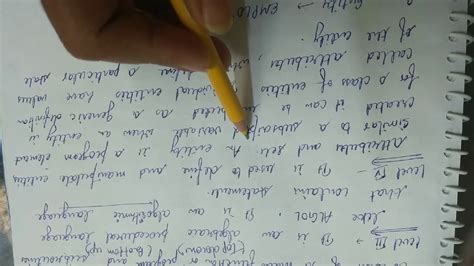 function or program and subroutines
(top down) (bottom up)
Level III → It is an algebraic procedural language
like ALGOL. It is an algorithmic language
that contains statements
Level IV → It is used to define and manipulate entities
attributes sets An entity is a program element
similar to a subscripted variable when an entity is
created it can be as a generic definition
for a class of entities Individual entities have values
called attributes, define a particular state
of the entity.
Entity → EMPLO